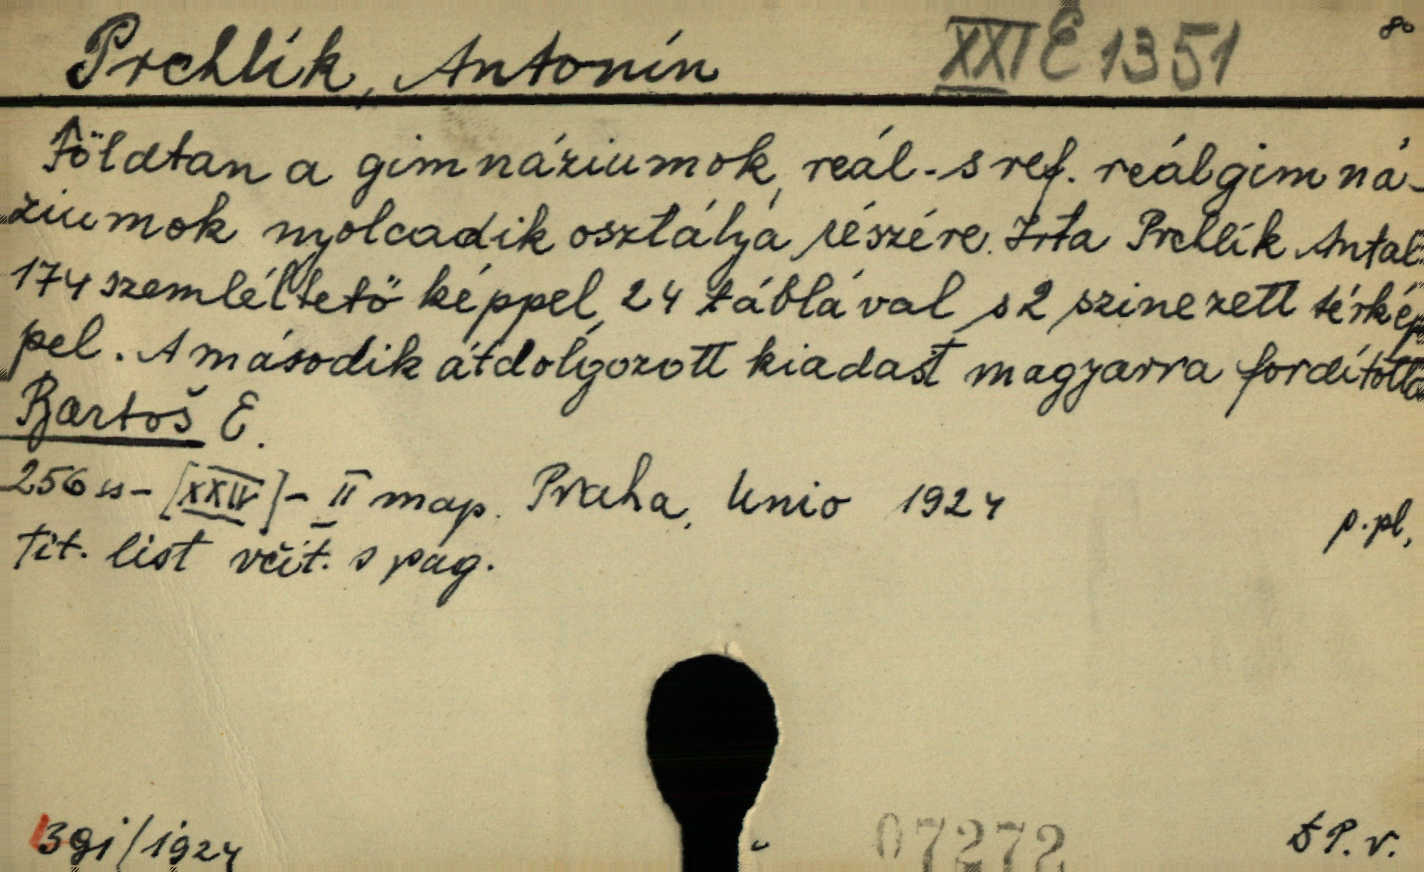 Prchlík, Antonín XXI E 1351 80
Földtan a gimnáziumok, reál- s ref. reálgimná-
ziumok nyolcadik osztálya részére. Irta Prchlík Antal.
174 szemléltető képpel, 24 táblával s 2 szinezett térkép
pel. A második átdolgozott kiadast magyarra fordította
Bartoš E.
256 ss - [XXIV] - II map. Praha, Unio 1924 p. pl,
Tit. list včít. s pag.
39j/1924 07272 P. v.